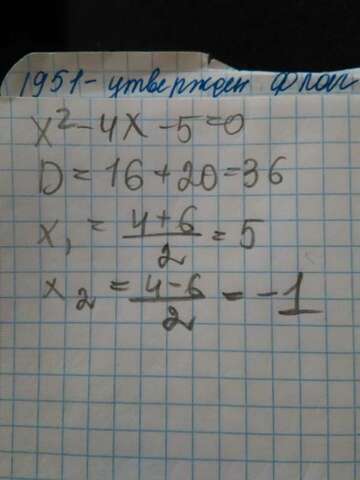 1951 - утвержден флаг
x² - 4x - 5 = 0
D = 16 + 20 = 36
x₁ = (4 + 6)/2 = 5
x₂ = (4 - 6)/2 = -1